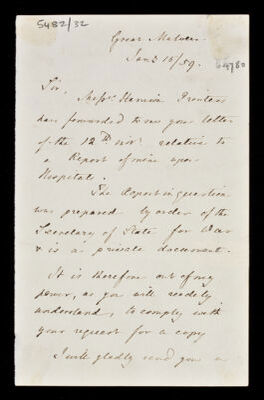 5482/32
Great Malvern
Jan 15/59.
64780
Sir,
Messrs Harrison Printers
have forwarded to me your letter
of the 12th inst relative to
a Report of mine upon
Hospitals.
The Report in question
was prepared by order of the
Secretary of State for War
& is a private document.
It is therefore out of my
power, as you will readily
understand, to comply with
your request for a copy
I will gladly send you a